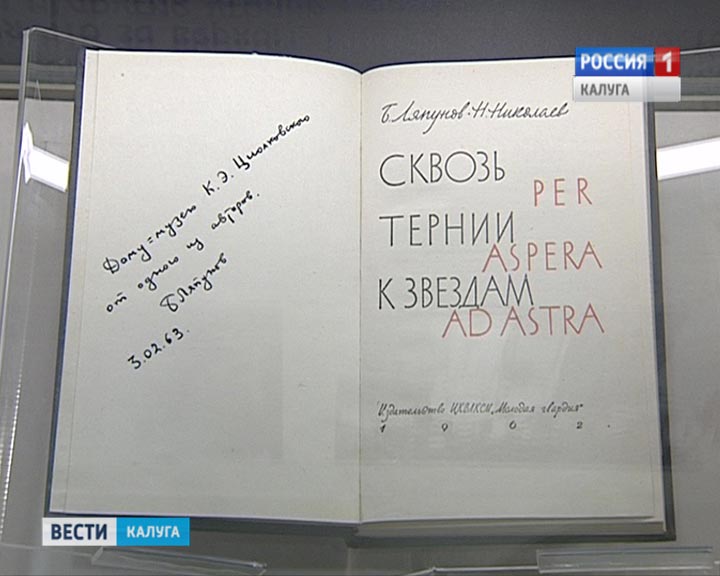 РОССИЯ 1
КАЛУГА
Дому=музею К. Э. Циолковского
от одного из авторов.
БЛяпунов
3.02.63.
Б. Ляпунов · Н. Николаев
СКВОЗЬ
PER
ТЕРНИИ
ASPERA
К ЗВЕЗДАМ
AD ASTRA
Издательство ЦК ВЛКСМ „Молодая гвардия“
1962
ВЕСТИ КАЛУГА